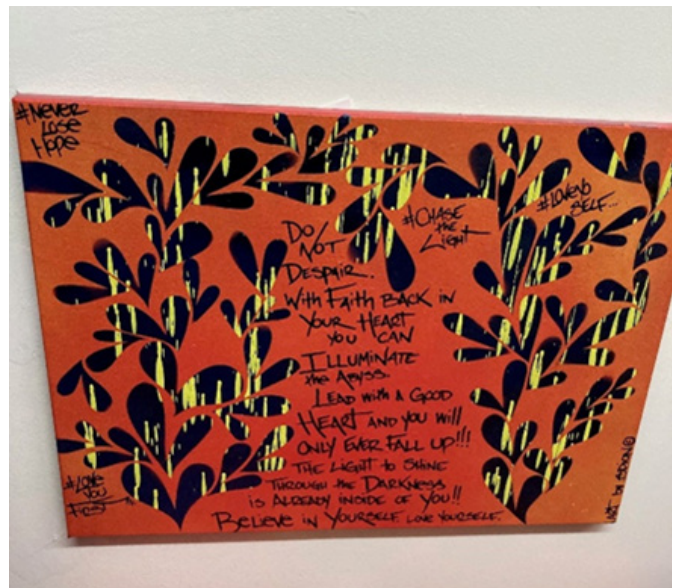 #NEVER
LOSE
HOPE
#CHASE
the
LIGHT
#LOVEYO
SELF...
DO
NOT
DESPAIR.
With FAITH BACK IN
YOUR HEART
YOU CAN
ILLUMINATE
the ABYSS.
LEAD WITH A GOOD
HEART AND YOU WILL
ONLY EVER FALL UP!!!
THE LIGHT to SHINE
THROUGH the DARKNESS
IS ALREADY INSIDE OF YOU!!
BELIEVE IN YOURSELF. LOVE YOURSELF.
#LOVE
YOU
FIRST